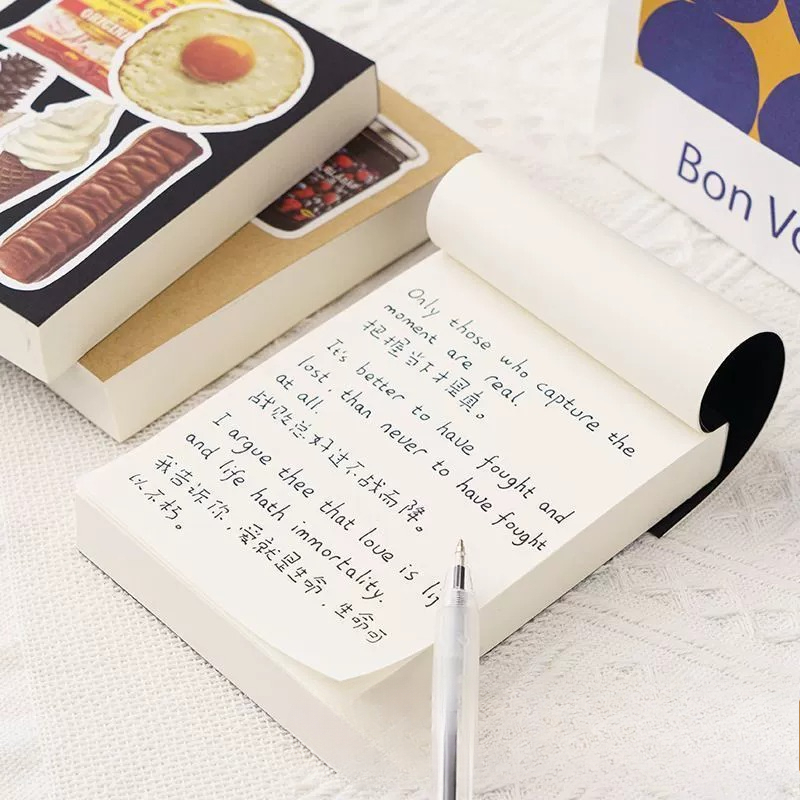 ORIGINAL
Bon Vo
Only those who capture the
moment are real.
把握当下才是真。
It's better to have fought and
lost, than never to have fought
at all.
战败总好过不战而降。
I argue thee that love is li
and life hath immortality.
我告诉你，爱就是生命，生命可
以不朽。